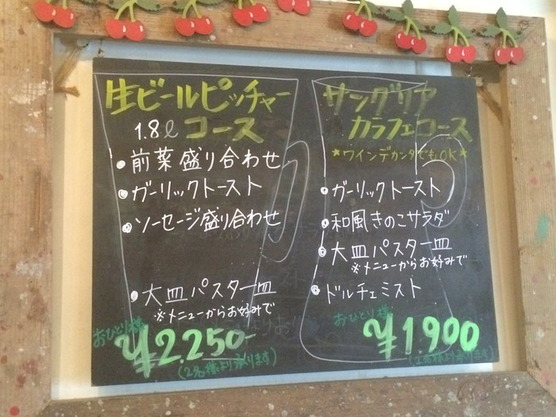 生ビールピッチャー
1.8ℓ コース
・前菜盛り合わせ
・ガーリックトースト
・ソーセージ盛り合わせ
・大皿パスタ一皿
※メニューからお好みで
おひとり様
¥2,250-
(2名様より承ります)
サングリア
カラフェコース
★ワインデカンタでもOK★
・ガーリックトースト
・和風きのこサラダ
・大皿パスタ一皿
※メニューからお好みで
・ドルチェミスト
おひとり様
¥1,900
(2名様より承ります)